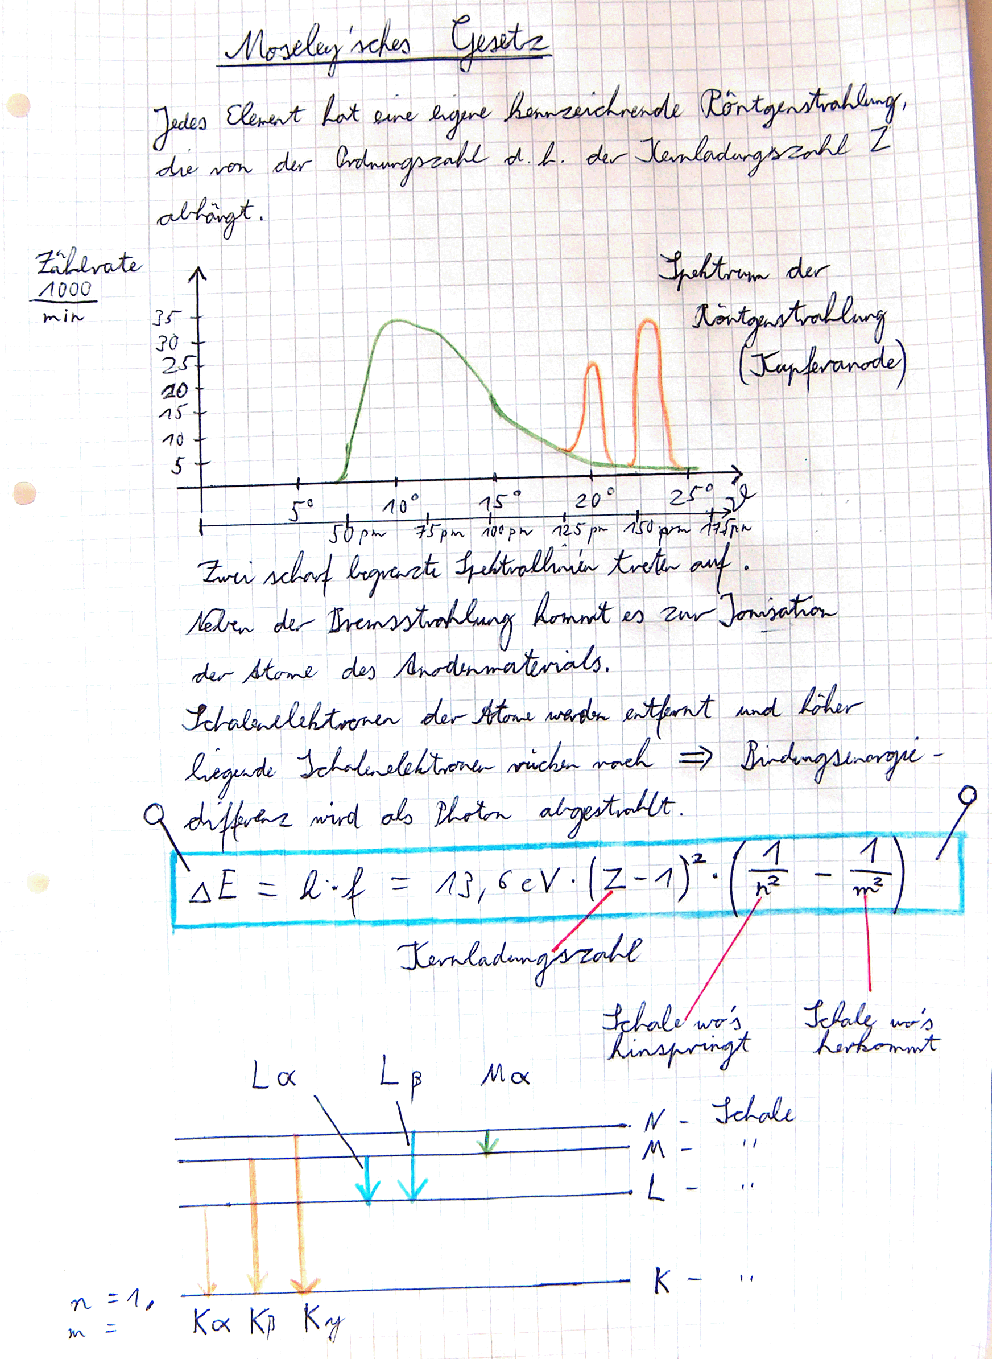 Moseley'sches Gesetz
Jedes Element hat eine eigene kennzeichnende Röntgenstrahlung,
die von der Ordnungszahl d.h. der Kernladungszahl Z
abhängt.
Zählrate
1000
min
35
30
25
20
15
10
5
Spektrum der
Röntgenstrahlung
(Kupferanode)
5° 10° 15° 20° 25° ϑ
50 pm 75 pm 100 pm 125 pm 150 pm 175 pm
Zwei scharf begrenzte Spektrallinien treten auf.
Neben der Bremsstrahlung kommt es zur Ionisation
der Atome des Anodenmaterials.
Schalenelektronen der Atome werden entfernt und höher
liegende Schalenelektronen rücken nach ⇒ Bindungsenergie-
differenz wird als Photon abgestrahlt.
ΔE = h·f = 13,6 eV · (Z-1)² · (1/n² - 1/m²)
Kernladungszahl
Schale wo's
hinspringt
Schale wo's
herkommt
Lα Lβ Mα
N - Schale
M - "
L - "
K - "
n = 1,
m =
Kα Kβ Kγ